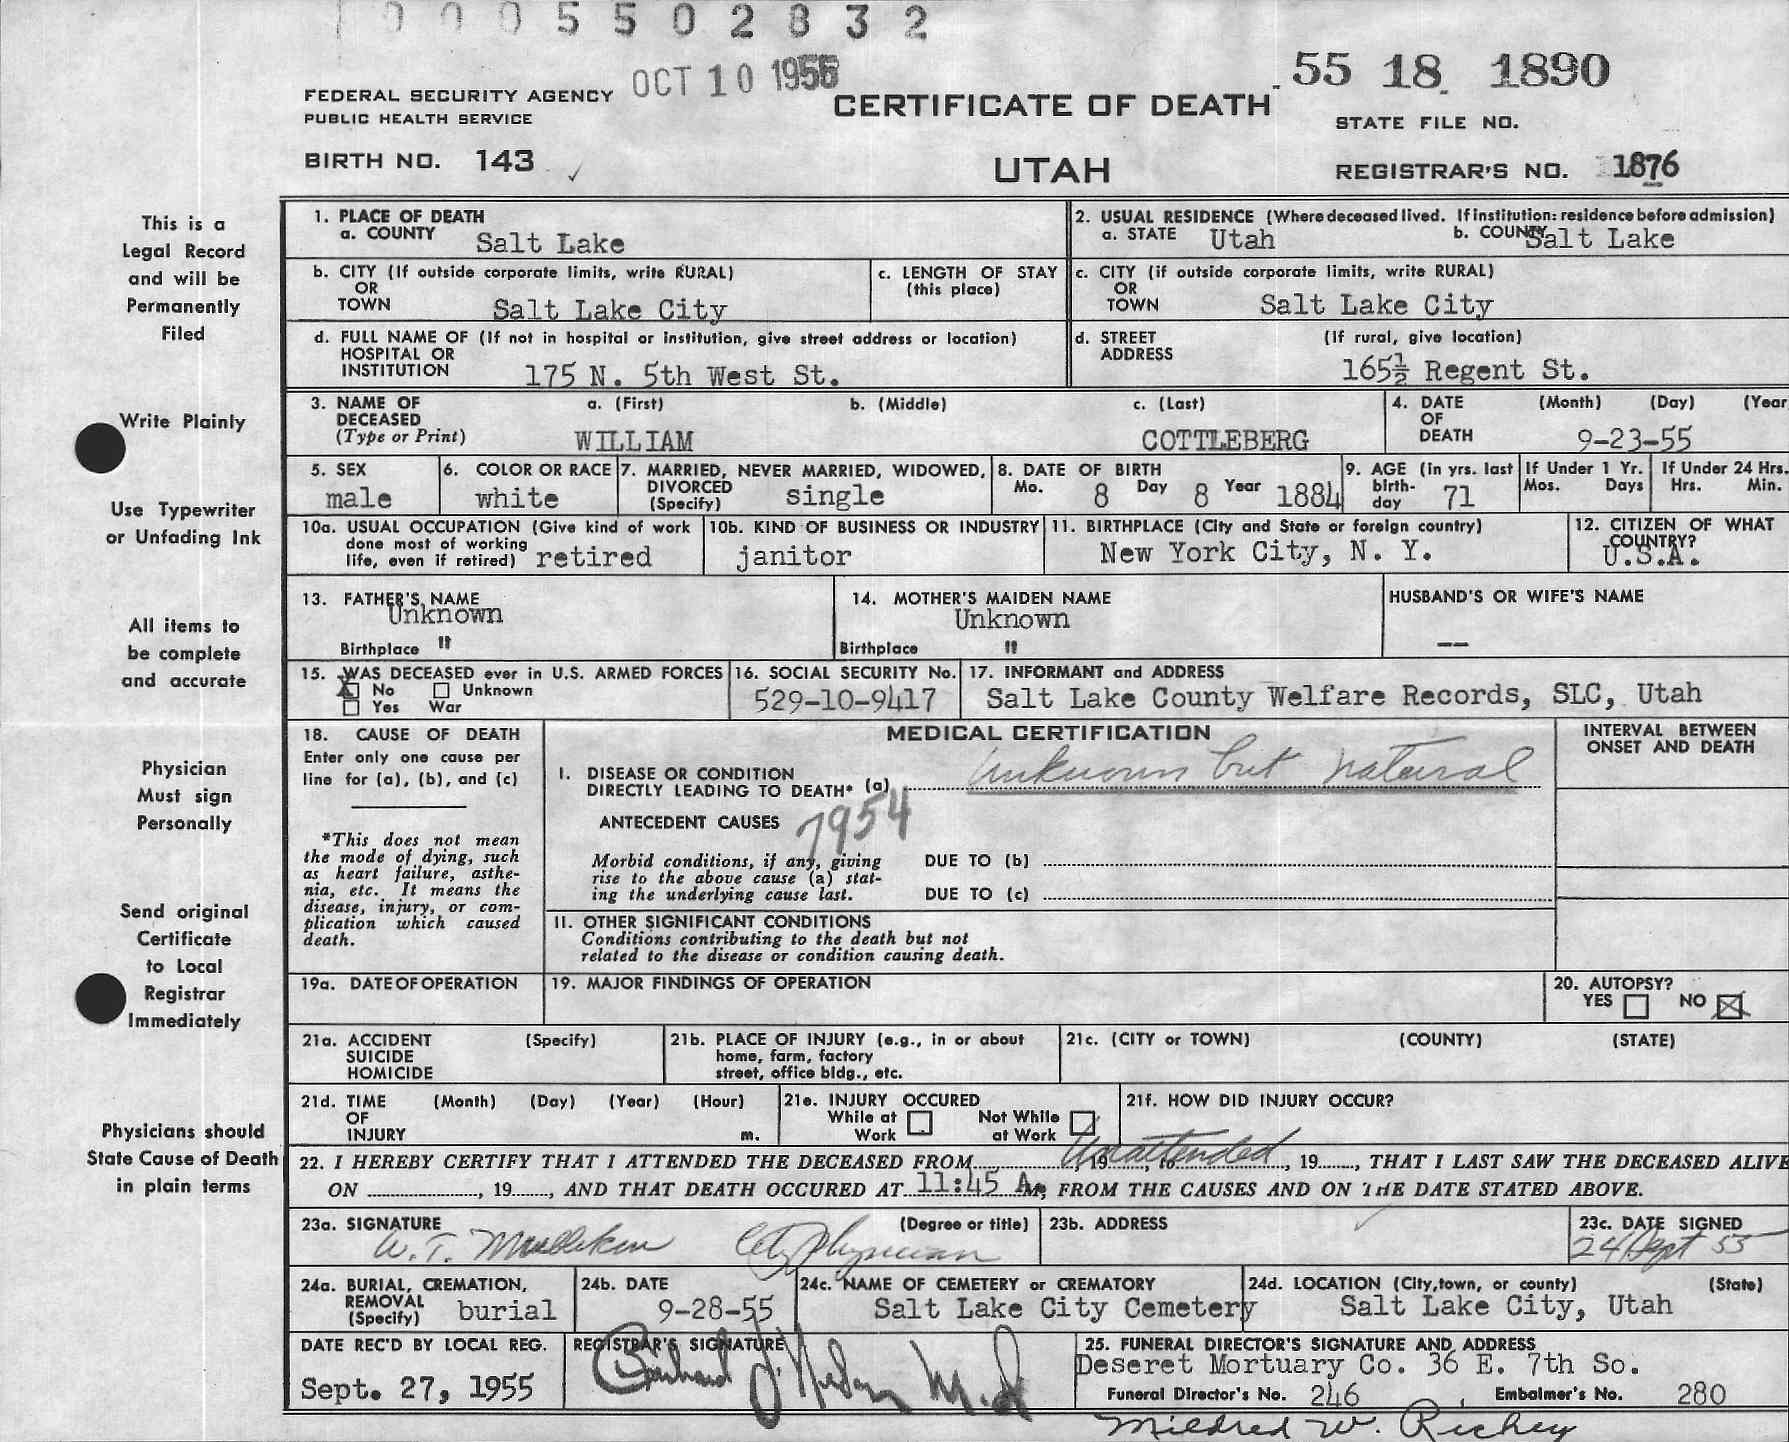 0005502832
OCT 10 1955
55 18 1890
FEDERAL SECURITY AGENCY
PUBLIC HEALTH SERVICE
CERTIFICATE OF DEATH
STATE FILE NO.
BIRTH NO. 143
UTAH
REGISTRAR'S NO. 1876
This is a
Legal Record
and will be
Permanently
Filed
Write Plainly
Use Typewriter
or Unfading Ink
All items to
be complete
and accurate
Physician
Must sign
Personally
Send original
Certificate
to Local
Registrar
Immediately
Physicians should
State Cause of Death
in plain terms
1. PLACE OF DEATH
a. COUNTY Salt Lake
2. USUAL RESIDENCE (Where deceased lived. If institution: residence before admission)
a. STATE Utah b. COUNTY Salt Lake
b. CITY (If outside corporate limits, write RURAL)
OR
TOWN Salt Lake City
c. LENGTH OF STAY
(this place)
c. CITY (if outside corporate limits, write RURAL)
OR
TOWN Salt Lake City
d. FULL NAME OF (If not in hospital or institution, give street address or location)
HOSPITAL OR
INSTITUTION 175 N. 5th West St.
d. STREET (If rural, give location)
ADDRESS
165½ Regent St.
3. NAME OF a. (First) b. (Middle) c. (Last)
DECEASED
(Type or Print) WILLIAM COTTLEBERG
4. DATE (Month) (Day) (Year
OF
DEATH 9-23-55
5. SEX
male
6. COLOR OR RACE
white
7. MARRIED, NEVER MARRIED, WIDOWED,
DIVORCED
(Specify) single
8. DATE OF BIRTH
Mo. 8 Day 8 Year 1884
9. AGE (in yrs. last
birth-
day 71
If Under 1 Yr.
Mos. Days
If Under 24 Hrs.
Hrs. Min.
10a. USUAL OCCUPATION (Give kind of work
done most of working
life, even if retired) retired
10b. KIND OF BUSINESS OR INDUSTRY
janitor
11. BIRTHPLACE (City and State or foreign country)
New York City, N. Y.
12. CITIZEN OF WHAT
COUNTRY?
U.S.A.
13. FATHER'S NAME
Unknown
Birthplace "
14. MOTHER'S MAIDEN NAME
Unknown
Birthplace "
HUSBAND'S OR WIFE'S NAME
--
15. WAS DECEASED ever in U.S. ARMED FORCES
X No Unknown
Yes War
16. SOCIAL SECURITY No.
529-10-9417
17. INFORMANT and ADDRESS
Salt Lake County Welfare Records, SLC, Utah
18. CAUSE OF DEATH
Enter only one cause per
line for (a), (b), and (c)
*This does not mean
the mode of dying, such
as heart failure, asthe-
nia, etc. It means the
disease, injury, or com-
plication which caused
death.
MEDICAL CERTIFICATION
INTERVAL BETWEEN
ONSET AND DEATH
I. DISEASE OR CONDITION
DIRECTLY LEADING TO DEATH* (a) Unknown but natural
ANTECEDENT CAUSES 7954
Morbid conditions, if any, giving
rise to the above cause (a) stat-
ing the underlying cause last.
DUE TO (b)
DUE TO (c)
II. OTHER SIGNIFICANT CONDITIONS
Conditions contributing to the death but not
related to the disease or condition causing death.
19a. DATE OF OPERATION
19. MAJOR FINDINGS OF OPERATION
20. AUTOPSY?
YES NO X
21a. ACCIDENT (Specify)
SUICIDE
HOMICIDE
21b. PLACE OF INJURY (e.g., in or about
home, farm, factory
street, office bldg., etc.
21c. (CITY or TOWN) (COUNTY) (STATE)
21d. TIME (Month) (Day) (Year) (Hour)
OF
INJURY m.
21e. INJURY OCCURED
While at Work
Not While at Work
21f. HOW DID INJURY OCCUR?
22. I HEREBY CERTIFY THAT I ATTENDED THE DECEASED FROM Unattended, 19....., to, 19......, THAT I LAST SAW THE DECEASED ALIVE
ON ..................., 19......., AND THAT DEATH OCCURED AT 11:45 A M, FROM THE CAUSES AND ON THE DATE STATED ABOVE.
23a. SIGNATURE (Degree or title)
W. T. City Physician
23b. ADDRESS
23c. DATE SIGNED
24 Sept 55
24a. BURIAL, CREMATION,
REMOVAL
(Specify) burial
24b. DATE
9-28-55
24c. NAME OF CEMETERY or CREMATORY
Salt Lake City Cemetery
24d. LOCATION (City, town, or county) (State)
Salt Lake City, Utah
DATE REC'D BY LOCAL REG.
Sept. 27, 1955
REGISTRAR'S SIGNATURE
M.D
25. FUNERAL DIRECTOR'S SIGNATURE AND ADDRESS
Deseret Mortuary Co. 36 E. 7th So.
Funeral Director's No. 246 , Embalmer's No. 280
Mildred W. Richey